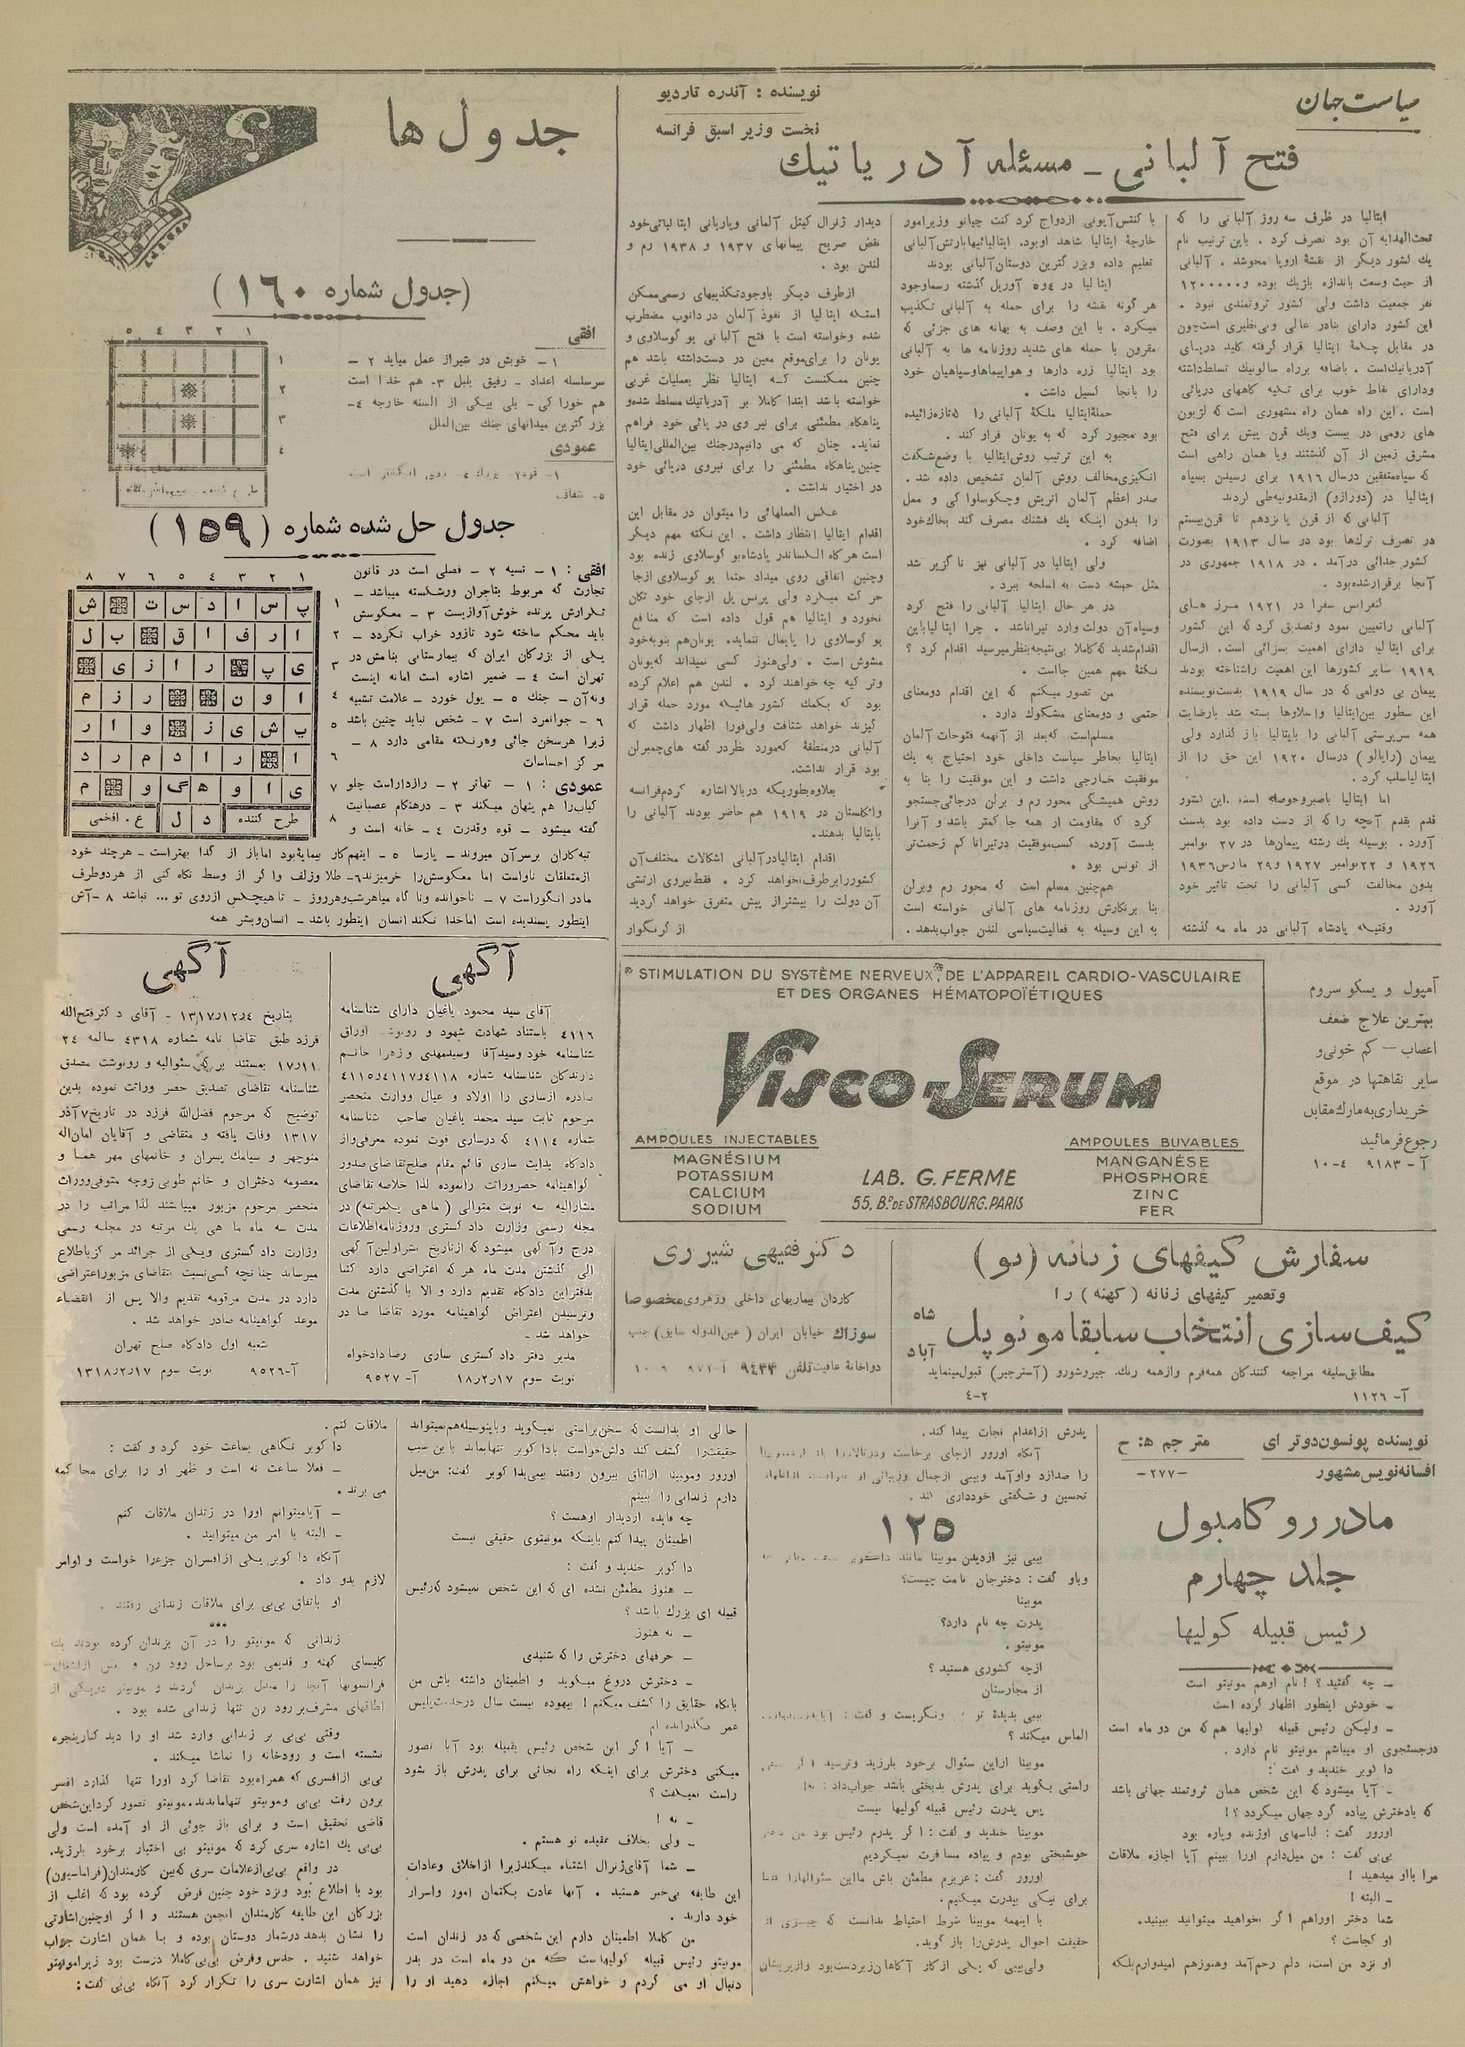 سیاست جهان
نویسنده : آندره تاردیو
نخست وزیر اسبق فرانسه
فتح آلبانی ـ مسئله آدریاتیك
ایتالیا در ظرف سه روز آلبانی را که
تحت‌الهدایه آن بود تصرف کرد . باین ترتیب نام
یك کشور دیگر از نقشهٔ اروپا محوشد . آلبانی
از حیث وسعت باندازه بلژیك بوده و ۱۲۰۰۰۰۰
نفر جمعیت داشت ولی کشور ثروتمندی نبود .
این کشور دارای بنادر عالی و بی‌نظیری است‌چون
در مقابل چکمهٔ ایتالیا قرار گرفته کلید دریای
آدریاتیك‌است . باضافه برراه سالونیك تسلط‌داشته
ودارای نقاط خوب برای تکیه گاههای دریائی
است . این راه همان راه مشهوری است که لژیون
های رومی در بیست ویك قرن پیش برای فتح
مشرق زمین از آن گذشتند وبا همان راهی است
که سپاه‌متفقین درسال ۱۹۱۶ برای رسیدن بسپاه
ایتالیا در (دورازو) ازمقدونیه‌طی کردند
آلبانی که از قرن پانزدهم تا قرن‌بیستم
در تصرف ترك‌ها بود در سال ۱۹۱۳ بصورت
کشور جدائی درآمد . در ۱۹۱۸ جمهوری در
آنجا برقرارشده‌بود .
کنفرانس سفرا در ۱۹۲۱ مرز های
آلبانی راتعیین نمود وتصدیق کرد که این کشور
برای ایتالیا دارای اهمیت بسزائی است . ازسال
۱۹۱۹ سایر کشورها این اهمیت راشناخته بودند
پیمان بی دوامی که در سال ۱۹۱۹ بدست‌نویسنده
این سطور بین‌ایتالیا واسلاوها بسته شد بارضایت
همه سرپرستی آلبانی را بایتالیا باز گذارد ولی
پیمان (راپالو) درسال ۱۹۲۰ این حق را از
ایتالیاسلب کرد .
اما ایتالیا باصبروحوصله است. این کشور
قدم بقدم آنچه را که از دست داده بود بدست
آورد . بوسیله یك رشته پیمان‌ها در ۲۷ نوامبر
۱۹۲۶ و ۲۲ نوامبر ۱۹۲۷ و ۲۹ مارس ۱۹۳۶
بدون مخالفت کسی آلبانی را تحت تاثیر خود
آورد .
وقتیکه پادشاه آلبانی در ماه مه گذشته
با کنتس آپونی ازدواج کرد کنت چیانو وزیرامور
خارجهٔ ایتالیا شاهد اوبود. ایتالیائیهابارتش‌آلبانی
تعلیم داده وبزرگترین دوستان‌آلبانی بودند
ایتالیا در ۴ و۵ آوریل گذشته رسماوجود
هر گونه نقشه را برای حمله به آلبانی تکذیب
میکرد . با این وصف به بهانه های جزئی که
مقرون با حمله های شدید روزنامه ها به آلبانی
بود ایتالیا زره دارها و هواپیماهاوسپاهیان خود
را بانجا گسیل داشت .
حمله‌ایتالیا ملکهٔ آلبانی را که‌تازه‌زائیده
بود مجبور کرد که به یونان فرار کند .
به این ترتیب روش‌ایتالیا با وضع‌شگفت
انگیزی‌مخالف روش آلمان تشخیص داده شد .
صدر اعظم آلمان اتریش وچکوسلواکی و ممل
را بدون اینکه یك فشنگ مصرف کند بخاك‌خود
اضافه کرد .
ولی ایتالیا در آلبانی نیز ناگزیر شد
مثل حبشه دست به اسلحه ببرد .
در هر حال ایتالیا آلبانی را فتح کرد
وسپاه‌آن دولت وارد تیراناشد . چرا ایتالیاباین
اقدام‌شدیدکه‌کاملا بی‌نتیجه‌بنظرمیرسید اقدام کرد ؟
نکتهٔ مهم همین جااست .
من تصور میکنم که این اقدام دومعنای
حتمی و دومعنای مشکوك دارد .
مسلم‌است که‌بعد از آنهمه فتوحات آلمان
ایتالیا بخاطر سیاست داخلی خود احتیاج به یك
موفقیت خارجی داشت و این موفقیت را بنا به
روش همیشگی محور رم و برلن درجائی‌جستجو
کرد که مقاومت از همه جا کمتر باشد و آنرا
بدست آورد. کسب‌موفقیت درتیرانا کم زحمت‌تر
از تونس بود .
همچنین مسلم است که محور رم وبرلن
بنا برنگارش روزنامه های آلمانی خواسته است
به این وسیله به فعالیت‌سیاسی لندن جواب‌بدهد .
دیدار ژنرال کیتل آلمانی وپاریانی ایتالیائی‌خود
نقض صریح پیمانهای ۱۹۳۷ و ۱۹۳۸ رم و
لندن بود .
ازطرف دیگر باوجودتکذیبهای رسمی‌ممکن
است‌که ایتالیا از نفوذ آلمان در دانوب مضطرب
شده وخواسته است با فتح آلبانی یوگوسلاوی و
یونان را برای‌موقع معین در دست‌داشته باشد هم
چنین ممکنست که ایتالیا نظر بعملیات غربی
خواسته باشد ابتدا کاملا بر آدریاتیك مسلط شده‌و
پناهگاه مطمئنی برای نیروی دریائی خود فراهم
نماید. چنان که می دانیم‌درجنك بین‌المللی‌ایتالیا
چنین‌پناهگاه مطمئنی را برای نیروی دریائی خود
در اختیار نداشت .
عکس العملهائی را میتوان در مقابل این
اقدام ایتالیا انتظار داشت . این نکته مهم دیگر
است هرگاه الکساندر پادشاه‌یوگوسلاوی زنده بود
وچنین اتفاقی روی میداد حتما یوگوسلاوی ازجا
حرکت میکرد ولی پرنس پل ازجای خود تکان
نخورد و ایتالیا هم قول داده است که منافع
یوگوسلاوی را پایمال ننماید. یونان‌هم بنوبه‌خود
مشوش است . ولی‌هنوز کسی نمیداند که‌یونان
وترکیه چه خواهند کرد . لندن هم اعلام کرده
بود که بکمك کشور هائیکه مورد حمله قرار
گیرند خواهد شتافت ولی‌فورا اظهار داشت که
آلبانی درمنطقهٔ که‌مورد نظردر گفته های‌چمبرلن
بود قرار نداشت.
بعلاوه‌بطوریکه دربالا اشاره کردم‌فرانسه
وانگلستان در ۱۹۱۹ هم حاضر بودند آلبانی را
بایتالیا بدهند.
اقدام ایتالیادرآلبانی اشکالات مختلف‌آن
کشوررابرطرف‌نخواهد کرد . فقط‌نیروی ارتشی
آن دولت را بیشتراز پیش متفرق خواهد گردید
از گرنگوار
جدول ها
(جدول شماره ۱۶۰)
۱ ۲ ۳ ۴ ۵
۱
۲
۳
۴
افقی
۱ـ خوبش در شیراز عمل میاید ۲ ـ
سرسلسله اعداد ـ رفیق بلبل ۳ـ هم خدا است
هم خوراکی ـ بلی بیکی از السنه خارجه ۴ـ
بزرگترین میدانهای جنك بین‌الملل
عمودی
جدول حل شده شماره (۱۵۹)
افقی : ۱ ـ نسیه ۲ ـ فصلی است در قانون
تجارت که مربوط بتاجران ورشکسته میباشد ـ
تکرارش پرنده خوش‌آوازیست ۳ ـ معکوسش
باید محکم ساخته شود تازود خراب نگردد ـ
یکی از بزرگان ایران که بیمارستانی بنامش در
تهران است ۴ ـ ضمیر اشاره است امانه اینست
ونه‌آن ـ جنك ۵ ـ پول خورد ـ علامت تشبیه
۶ ـ جوانمرد است ۷ ـ شخص نباید چنین باشد
زیرا هرسخن جائی وهرنکته مقامی دارد ۸ ـ
مرکز احساسات
عمودی : ۱ ـ تهاتر ۲ ـ رازداراست چلو
کباب‌را هم پنهان میکند ۳ ـ درهنگام عصبانیت
گفته میشود ـ قوه وقدرت ۴ ـ خانه است و
تبه‌کاران برسرآن میروند ـ پارسا ۵ ـ اینهم‌کاز بیمایهٔ‌بود اماباز از گدا بهتراست ـ هرچند خود
ازمتعلقات ناواست اما معکوسش‌را خرمیزند ۶ـ طلا وزلف واگر از وسط نگاه کنی از هردوطرف
مادر انگوراست ۷ ـ ناخوانده وناگاه میاهرشب‌وهرروز ـ تاهیچکس ازروی تو... نباشد ۸ ـ آش
اینطور پسندیده است اماخدا نکند انسان اینطور باشد ـ انسان‌وبشر همه
۱ ۲ ۳ ۴ ۵ ۶ ۷ ۸
۱ پ س ا د س ت ش
۲ ا ر ف ا ق ب ل
۳ ی پ ر ا ز ی
۴ ا و ن ر ز م
۵ ب ش ی ز و ا ر
۶ ا ر ا د م ر د
۷ ی ا و ه گ و م
۸ طرح کننده د ل ع . افخمی
آگهی
آقای سید محمود باغبان دارای شناسنامه
۴۱۱۶ باستناد شهادت شهود و رونوشت اوراق
شناسنامه خود وسیدآقا وسیدمهدی وزهرا خانم
دارندگان شناسنامه شماره ۴۱۱۸و۴۱۱۷و۴۱۱۵
صادره ازساری را اولاد و عیال ووارث منحصر
مرحوم ثابت سید محمد باغبان صاحب شناسنامه
شماره ۴۱۱۴ که درساری فوت نموده معرفی‌واز
دادگاه بدایت ساری قائم مقام صلح‌تقاضای صدور
گواهینامه حصروراثت رانموده لذا خلاصه تقاضای
مشارالیه سه نوبت متوالی (ماهی یکمرتبه) در
مجله رسمی وزارت دادگستری وروزنامه‌اطلاعات
درج وآگهی میشود که‌ازتاریخ نشراولین آگهی
الی گذشتن مدت ماه هر که اعتراضی دارد کتبا
بدفتراین دادگاه تقدیم دارد و الا با گذشتن مدت
ونرسیدن اعتراض گواهینامه مورد تقاضا صادر
خواهد شد ـ
مدیر دفتر دادگستری ساری رضا دادخواه
نوبت سوم ۱۸٫۲٫۱۷ آ ـ ۹۵۲۷
آگهی
بتاریخ ۱۳۱۷٫۱۲٫۴ ـ آقای دکترفتح‌الله
فرزد طبق تقاضا نامه شماره ۴۳۱۸ سالمه ۲۴
۱۷٫۱۱ بمستند برگ سئوالیه و رونوشت مصدق
شناسنامه تقاضای تصدیق حصر وراثت نموده بدین
توضیح که مرحوم فضل‌الله فرزد در تاریخ ۷ آذر
۱۳۱۷ وفات یافته و متقاضی و آقایان امان‌اله
منوچهر و سیامك پسران و خانمهای مهر هما و
معصومه دختران و خانم طوبی زوجه متوفی‌ووراث
منحصر مرحوم مزبور میباشند لذا مراتب را در
مدت سه ماه ما هی یك مرتبه در مجله رسمی
وزارت دادگستری ویکی از جرائد مرکزباطلاع
میرساند چنانچه کسی‌نسبت بتقاضای مزبوراعتراضی
دارد در مدت مرقومه تقدیم والا پس از انقضاء
موعد گواهینامه صادر خواهد شد .
شعبه اول دادگاه صلح تهران
آ ـ ۹۵۲۶ نوبت سوم ۱۳۱۸٫۲٫۱۷
STIMULATION DU SYSTÈME NERVEUX, DE L'APPAREIL CARDIO-VASCULAIRE
ET DES ORGANES HÉMATOPOÏÉTIQUES
VISCO-SERUM
AMPOULES INJECTABLES
MAGNÉSIUM
POTASSIUM
CALCIUM
SODIUM
LAB. G. FERME
55, Bd DE STRASBOURG. PARIS
AMPOULES BUVABLES
MANGANÈSE
PHOSPHORE
ZINC
FER
آمپول ویسکو سروم
بهترین علاج ضعف
اعصاب ـ کم خونی و
سایر نقاهتها در موقع
خریداری به مارك مقابل
رجوع فرمائید
آ ـ ۹۱۸۳ ۴ـ۱۰
دکتر فقیهی شیرازی
کاردان بیماریهای داخلی وزهروی مخصوصا
سوزاك خیابان ایران (عین‌الدوله سابق) جنب
دواخانهٔ عافیت تلفن ۹۴۳۳
سفارش کیفهای زنانه (نو)
وتعمیر کیفهای زنانه (کهنه) را
کیف سازی انتخاب سابقا مونوپل شاه آباد
مطابق سلیقه مراجعه کنندگان همه‌فرم وازهمه رنك. جیروشورو (آسترجیر) قبول‌مینماید
آ ـ ۱۱۲۶ ۲ـ۴
نویسنده پونسون دوترای
افسانه نویس مشهور
مترجم ه: ح
ـ ۲۷۷ ـ
مادر روکامبول
جلد چهارم
رئیس قبیله کولیها
ـ چه گفتید ؟ ! نام اوهم مونیتو است
ـ خودش اینطور اظهار کرده است
ـ ولیکن رئیس قبیله کولیها هم که من دو ماه است
درجستجوی او میباشم مونیتو نام دارد .
داکوبر خندید و گفت :
ـ آیا میشود که این شخص همان ثروتمند جهانی باشد
که بادخترش پیاده گرد جهان میگردد ؟!
اورور گفت : لباسهای اوژنده وپاره بود
بی‌بی گفت : من میل‌دارم اورا ببینم آیا اجازه ملاقات
مرا بااو میدهید !
ـ البته !
شما دختر اوراهم اگر بخواهید میتوانید ببینید.
او کجاست ؟
او نزد من است، دلم رحم‌آمد وهنوزهم امیدوارم‌بلکه
پدرش ازاعدام نجات پیدا کند.
را صدازد واوآمد وبیبی ازجمال وزیبائی او
تحسین و شگفتی خودداری کند .
۱۲۵
وباو گفت : دخترجان نامت چیست؟
موبینا
پدرت چه نام دارد؟
مونیتو .
ازچه کشوری هستید ؟
از مجارستان
الماس میکند ؟
موبینا ازاین سئوال برخود بلرزید وترسید اگر
راستی بگوید برای پدرش بدبختی باشد جواب‌داد : نه!
پس پدرت رئیس قبیله کولیها نیست
موبینا خندید و گفت : اگر پدرم رئیس بود من دختر
خوشبختی بودم و پیاده مسافرت نمیکردیم
اورور گفت : عزیزم مطمئن باش مااین سئوالهارا فقط
برای نیکی بپدرت میکنیم .
با اینهمه موبینا شرط احتیاط ندانست که چیزی از
حقیقت احوال پدرش‌را بازگوید.
ولی‌بیبی که یکی ازکارآگاهان‌زبردست‌بود وازپریشان
حالی او بدانست که سخن‌براستی نمیگوید وباینوسیله‌هم‌نمیتواند
حقیقت‌را کشف کند دلش‌خواست باداکوبر تنهابماند بااین‌سبب
اورور وموبینا ازاتاق بیرون رفتند بیبی‌بداکوبر گفت: من‌میل
دارم زندانی‌را ببینم
چه فایده ازدیدار اوهست ؟
اطمینان پیدا کنم بااینکه مونیتوی حقیقی نیست
داکوبر خندید و گفت :
ـ هنوز مطمئن نشده ای که این شخص نمیشود که‌رئیس
قبیله ای بزرك باشد ؟
ـ نه هنوز
ـ حرفهای دخترش را که شنیدی
ـ دخترش دروغ میگوید و اطمینان داشته باش من
بانگاه حقایق را کشف میکنم ! بیهوده بیست سال درخدمت‌پلیس
عمر نگذرانده ام
ـ آیا اگر این شخص رئیس بقبیله بود آیا تصور
میکنی دخترش برای اینکه راه نجاتی برای پدرش باز شود
راست نمیگفت ؟
ـ نه !
ـ ولی بخلاف عقیده تو هستم .
ـ شما آقای‌ژنرال اشتباه میکنیدزیرا ازاخلاق وعادات
این طایفه بی‌خبر هستید . آنها عادت بکتمان امور واسرار
خود دارند .
من کاملا اطمینان دارم این شخصی که در زندان است
مونیتو رئیس قبیله کولیهاست که من دو ماه است در بدر
دنبال او می گردم و خواهش میکنم اجازه دهید او را
ملاقات کنم .
داکوبر نگاهی بساعت خود کرد و گفت :
ـ فعلا ساعت نه است و ظهر او را برای محاکمه
می برند .
ـ آیامیتوانم اورا در زندان ملاقات کنم
ـ البته با امر من میتوانید .
آنگاه داکوبر یکی ازافسران جزءرا خواست و اوامر
لازم بدو داد .
او باتفاق بی‌بی برای ملاقات زندانی رفتند .
***
زندانی که مونیتو را در آن بزندان کرده بودند یك
کلیسای کهنه و قدیمی بود برساحل رود رن و پس ازاشغال
فرانسویها آنجا را مبدل بزندان کردند و مونیتو دریکی از
اطاقهای مشرف‌برود رن تنها زندانی شده بود .
وقتی بی‌بی بر زندانی وارد شد او را دید کنارپنجره
نشسته است و رودخانه را تماشا میکند .
بی‌بی ازافسری که همراه‌بود تقاضا کرد اورا تنها گذارد افسر
برون رفت بی‌بی ومونیتو تنهاماندند.مونیتو تصور کرداین‌شخص
قاضی تحقیق است و برای باز جوئی از او آمده است ولی
بی‌بی یك اشاره سری کرد که مونیتو بی اختیار برخود بلرزید.
در واقع بی‌بی ازعلامات سری که‌بین کارمندان(فراماسیون)
بود با اطلاع بود ونزد خود چنین فرض کرده بود که اغلب از
بزرگان این طایفه کارمندان انجمن هستند و اگر اوچنین‌اشارتی
را نشان بدهد درشمار دوستان بوده و با همان اشارت جواب
خواهد شنید . حدس وفرض بی‌بی کاملا درست بود زیرامونیتو
نیز همان اشارت سری را تکرار کرد آنگاه بی‌بی گفت :